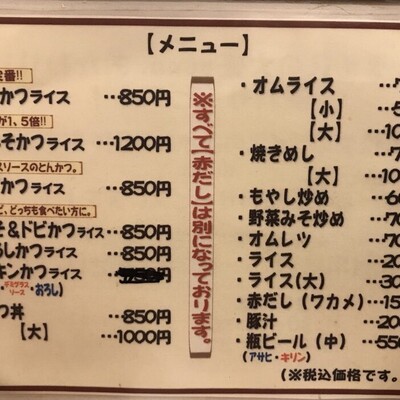 【メニュー】
定番!!
かつライス …850円
が1、5倍!!
そかつライス …1200円
スソースのとんかつ。
かつライス …850円
ビ、どっちも食べたい方に。
そ&ドビかつライス …850円
ろしかつライス …850円
キンかつライス
・デミグラスソース・おろし)
つ丼 …850円
【大】 …1000円
※すべて【赤だし】は別になっております。
・オムライス …7
【小】 …5
【大】 …10
・焼きめし …7
【大】 …10
・もやし炒め …60
・野菜みそ炒め …70
・オムレツ …70
・ライス …20
・ライス(大) …30
・赤だし(ワカメ)…15
・豚汁 …20
・瓶ビール(中) …550
(アサヒ・キリン)
(※税込価格です。